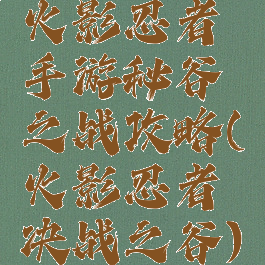 火影忍者
手游秘谷
之战攻略(
火影忍者
决战之谷)